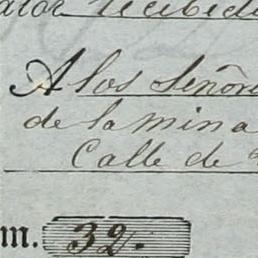 valor recibido
A los Señores
de la mina
Calle de
m. 32.